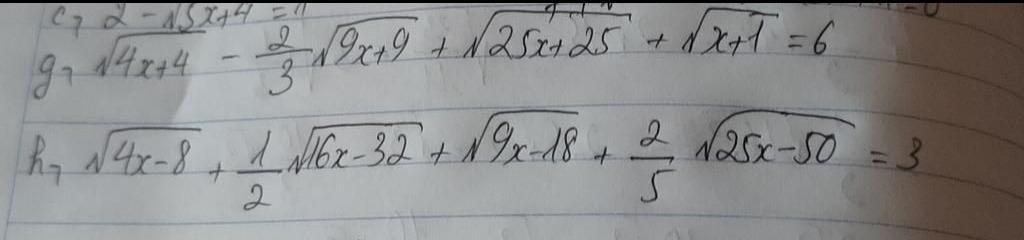 c, 2 - √5x+4 =
g, √4x+4 - 2/3 √9x+9 + √25x+25 + √x+1 = 6
h, √4x-8 + 1/2 √16x-32 + √9x-18 + 2/5 √25x-50 = 3